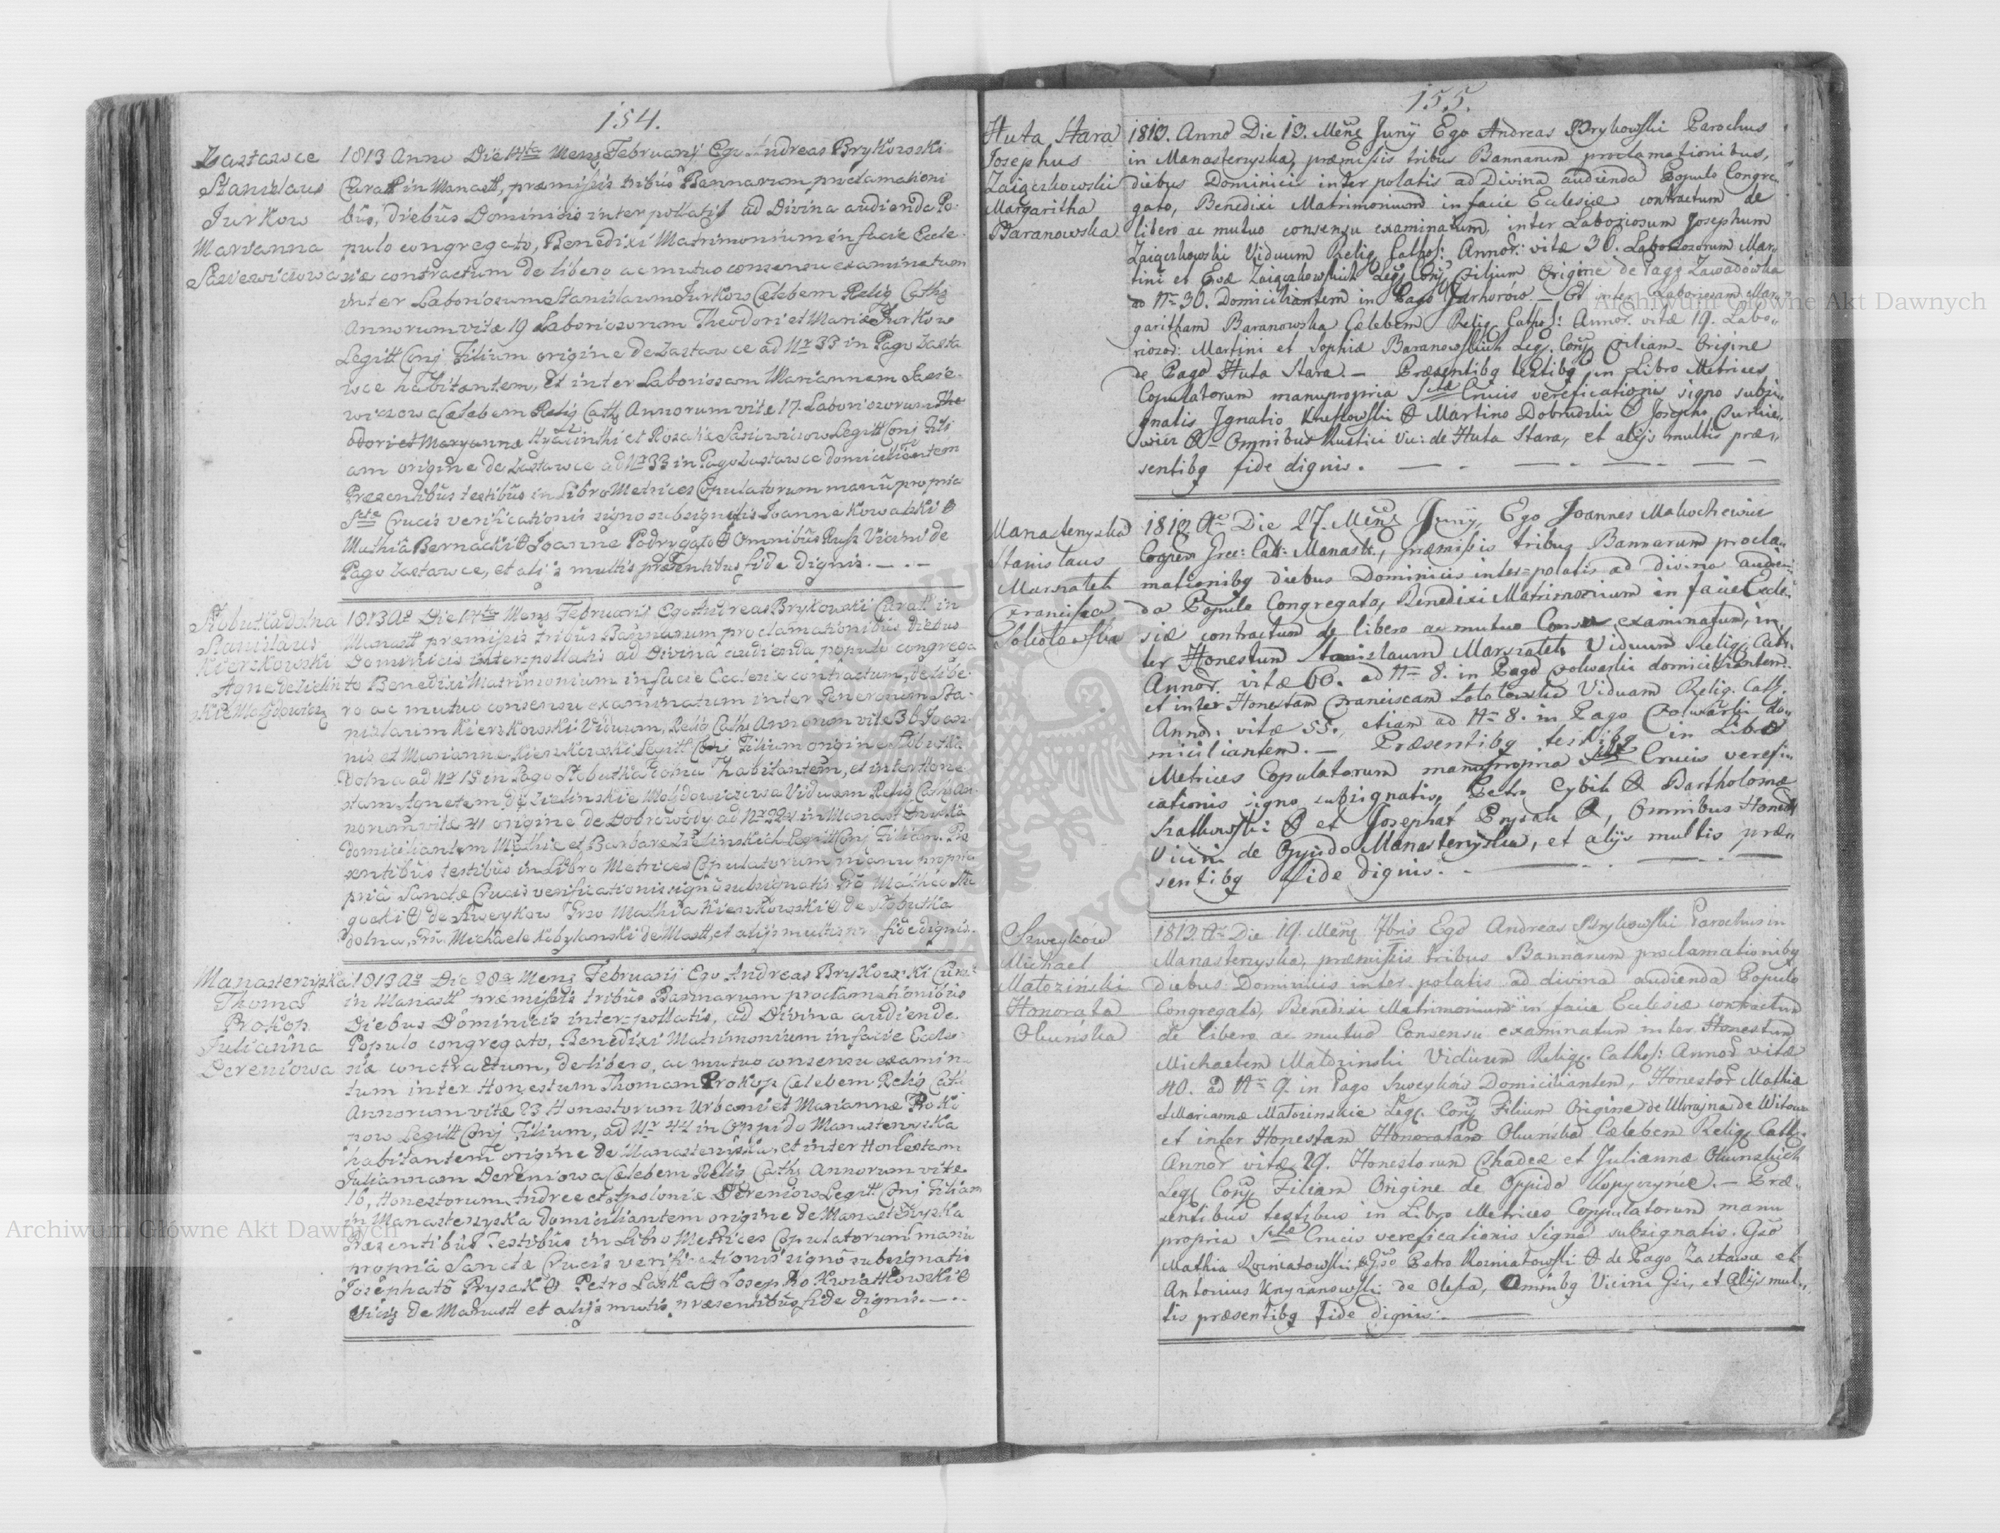 154.
Zastawce
Stanislaus
Jurkow
Marianna
Sasiewiczowa
1813 Anno Die 14ta Mens Februarij Ego Andreas Brykowski
Curat in Manast, præmissis tribus Bannarum proclamationi
bus, diebus Dominicis interpollatis ad Divina audienda Po-
pulo congregato, Benedixi Matrimonium in facie Eccle-
siæ contractum de libero ac mutuo consensu examinatum
inter Laboriosum Stanislaum Jurkow Cælebem Relig Cath
Annorum vitæ 19 Laboriosorum Theodori et Mariæ Jurkow
Legitt Conj Filium origine de Zastawce ad Nr 33 in Pago Zasta
wce habitantem, et inter Laboriosam Mariannam Sasie-
wiczowa Cælebem Relig Cath Annorum vitæ 17. Laboriosorum The
odori et Maryannæ et Rosaliæ Sasiewiczow Legitt Conj Fili
am origine de Zastawce ad Nr 33 in Pago Zastawce domiciliantem
Præsentibus testibus in Libro Metrices Copulatorum manu propria
Sctæ Crucis verificationis signo subsignatis Joanne Kowalski
Mathia Bernacki Joanne Podrygato Omnibus Rust Vicini de
Pago Zastawce, et alijs multis præsentibus fide dignis. — . —
Slobutka Dolna
Stanislaus
Kierzkowski
Agnes de Zielin
skie Mosdowicz
1813 Ao Die 14ta Mens Februarij Ego Andreas Brykowski Curat in
Manast præmissis tribus Bannarum proclamationibus diebus
Dominicis interpollatis ad Divina audienda populo congrega
to Benedixi Matrimonium in facie Ecclesiæ contractum, de libe-
ro ac mutuo consensu examinatum inter Generosum Sta-
nislaum Kierzkowski Viduum, Relig Cath Annorum vitæ 36 Joan
nis et Mariannæ Kierzkowski Legitt Conj Filium origine Slobutka
Dolna ad Nr 15 in Pago Slobutka Dolna habitantem, et inter Hone
stam Agnetem de Zielinskie Viduam Relig Cath An-
norum vitæ 41 origine de Dobrowody ad Nr 224 in Manast
domiciliantem Mathiæ et Barbaræ Zielinskich Legitt Conj Filiam. Præ
sentibus testibus in Libro Metrices Copulatorum manu propria
Sanctæ Crucis verificationis signo subsignatis
de Szweykow Mathia Kierzkowski de Slobutka
dolna, Michaele Kobylanski de Manst, et alijs multis fide dignis.
Manasterzyska
Thoma
Prokop
Julianna
Dereniowa
1813 Ao Die 28a Mens Februarij Ego Andreas Brykowski Curat
in Manast præmissis tribus Bannarum proclamationibus
Diebus Dominicis interpollatis, ad Divina audienda
Populo congregato, Benedixi Matrimonium in facie Eccle-
siæ contractum, de libero, ac mutuo consensu examin-
tum inter Honestum Thomam Prokop Cælebem Relig Cath
Annorum vitæ 23 Honestorum Urbani et Mariannæ Proko
pow Legitt Conj Filium, ad Nr 44 in Oppido Manasterzyska
habitantem origine de Manasterzyska, et inter Honestam
Juliannam Dereniowa Cælebem Relig Cath Annorum vitæ
16, Honestorum Andreæ et Apoloniæ Dereniow Legitt Conj Filiam
in Manasterzyska domiciliantem origine de Manasterzyska
Præsentibus Testibus in Libro Metrices Copulatorum manu
propria Sanctæ Crucis verificationis signo subsignatis
Josephato Prysak Petro Laska Josepho Kwiatkowski
Vicinis de Manast et alijs multis præsentibus fide dignis. — . —
155.
Huta Stara
Josephus
Zaigczkowski
Margaritha
Baranowska
1813. Anno Die 13. Mens Junij Ego Andreas Brykowski Parochus
in Manasterzyska, præmissis tribus Bannarum proclamationibus,
diebus Dominicis inter polatis ad Divina audienda Populo Congre-
gato, Benedixi Matrimonium in facie Eclesiæ contractum de
libero ac mutuo consensu examinatum, inter Laboriosum Josephum
Zaigczkowski Viduum Relig Cathol: Annor: vitæ 30. Laboriosorum Mar-
tini et Evæ Zaigczkowskich Leg. Conj Filium Origine de Pago Zawadówka
ad Nr 30. Domiciliantem in Pago Jarhorów — Et inter Laboriosam Mar-
garitham Baranowska Cælebem Relig. Cathol: Annor. vitæ 19. Labo-
riosor: Martini et Sophiæ Baranowskich Leg. Conj Filiam — Origine
de Pago Huta Stara — Præsentibq testibq in Libro Metrices
Copulatorum manupropria Sctæ Crucis verificationis signo subsi-
gnatis Ignatio Martino Dobrudzki Josepho
Omnibus Rustici Vic: de Huta Stara, et alijs multis præ-
sentibq fide dignis. — . — . — —
Manasterzyska
Stanislaus
Marszałek
Francisca
Sokołowska
1813 Ao Die 27. Mens Junij, Ego Joannes Makochewicz
Cooper Grec: Cat: Manast:, præmissis tribus Bannarum procla-
mationibq diebus Dominicis inter-polatis ad divina audien-
da Populo Congregato, Benedixi Matrimonium in facie Ecle-
siæ contractum de libero ac mutuo Consu examinatum, in-
ter Honestum Stanislaum Marszałek Viduum Relig: Cat:
Annor. vitæ 60. ad Nr 8. in Pago Folwarki domiciliantem.
et inter Honestam Franciscam Sokolowska Viduam Relig. Cath.
Annor: vitæ 55. etiam ad Nr 8. in Pago Folwarki do-
miciliantem. — Præsentibq testibq in Libro
Metrices Copulatorum manupropria Sctæ Crucis verefi-
cationis signo subsignatis, Petro Cybik Bartholomæ
et Josephat Prysak, Omnibus Honest
Vicini de Oppido Manasterzyska, et alijs multis præ-
sentibq fide dignis.
Szweyków
Michael
Matozinski
Honorata
Okuńska
1813. Ao Die 19. Mens 7bris Ego Andreas Brykowski Parochus in
Manasterzyska, præmissis tribus Bannarum proclamationibq
diebus Dominicis inter polatis ad divina audienda Populo
Congregato, Benedixi Matrimonium in facie Eclesiæ contractum
de libero ac mutuo Consensu examinatum inter Honestum
Michaelem Matozinski Viduum Relig. Cathol: Annor vitæ
40. ad Nr 9. in Pago Szweyków Domiciliantem, Honestor Mathiæ
et Mariannæ Matozinskie Leg. Conj Filium Origine de Ukrajna de Witow
et inter Honestam Honoratam Okuńska Cælebem Relig. Cath:
Annor vitæ 29. Honestorum Thadeæ et Juliannæ Okunskich
Leg. Conj Filiam Origine de Oppido Kopyczyńce. — Præ-
sentibus testibus in Libro Metrices Copulatorum manu
propria Sctæ Crucis verificationis Signo subsignatis. Gso
Mathia Rozniatowski Gso Petro Rozniatowski de Pago Zastawce et
Antonius de Olesza, Omnibq Vicini Gsi, et Alijs mul-
tis præsentibq fide dignis. —
Archiwum Główne Akt Dawnych
Archiwum Główne Akt Dawnych